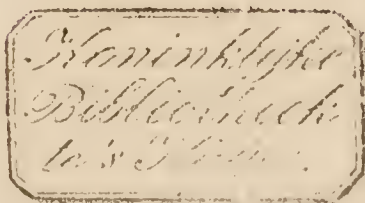 Koninklijke
Bibliotheek
te 's